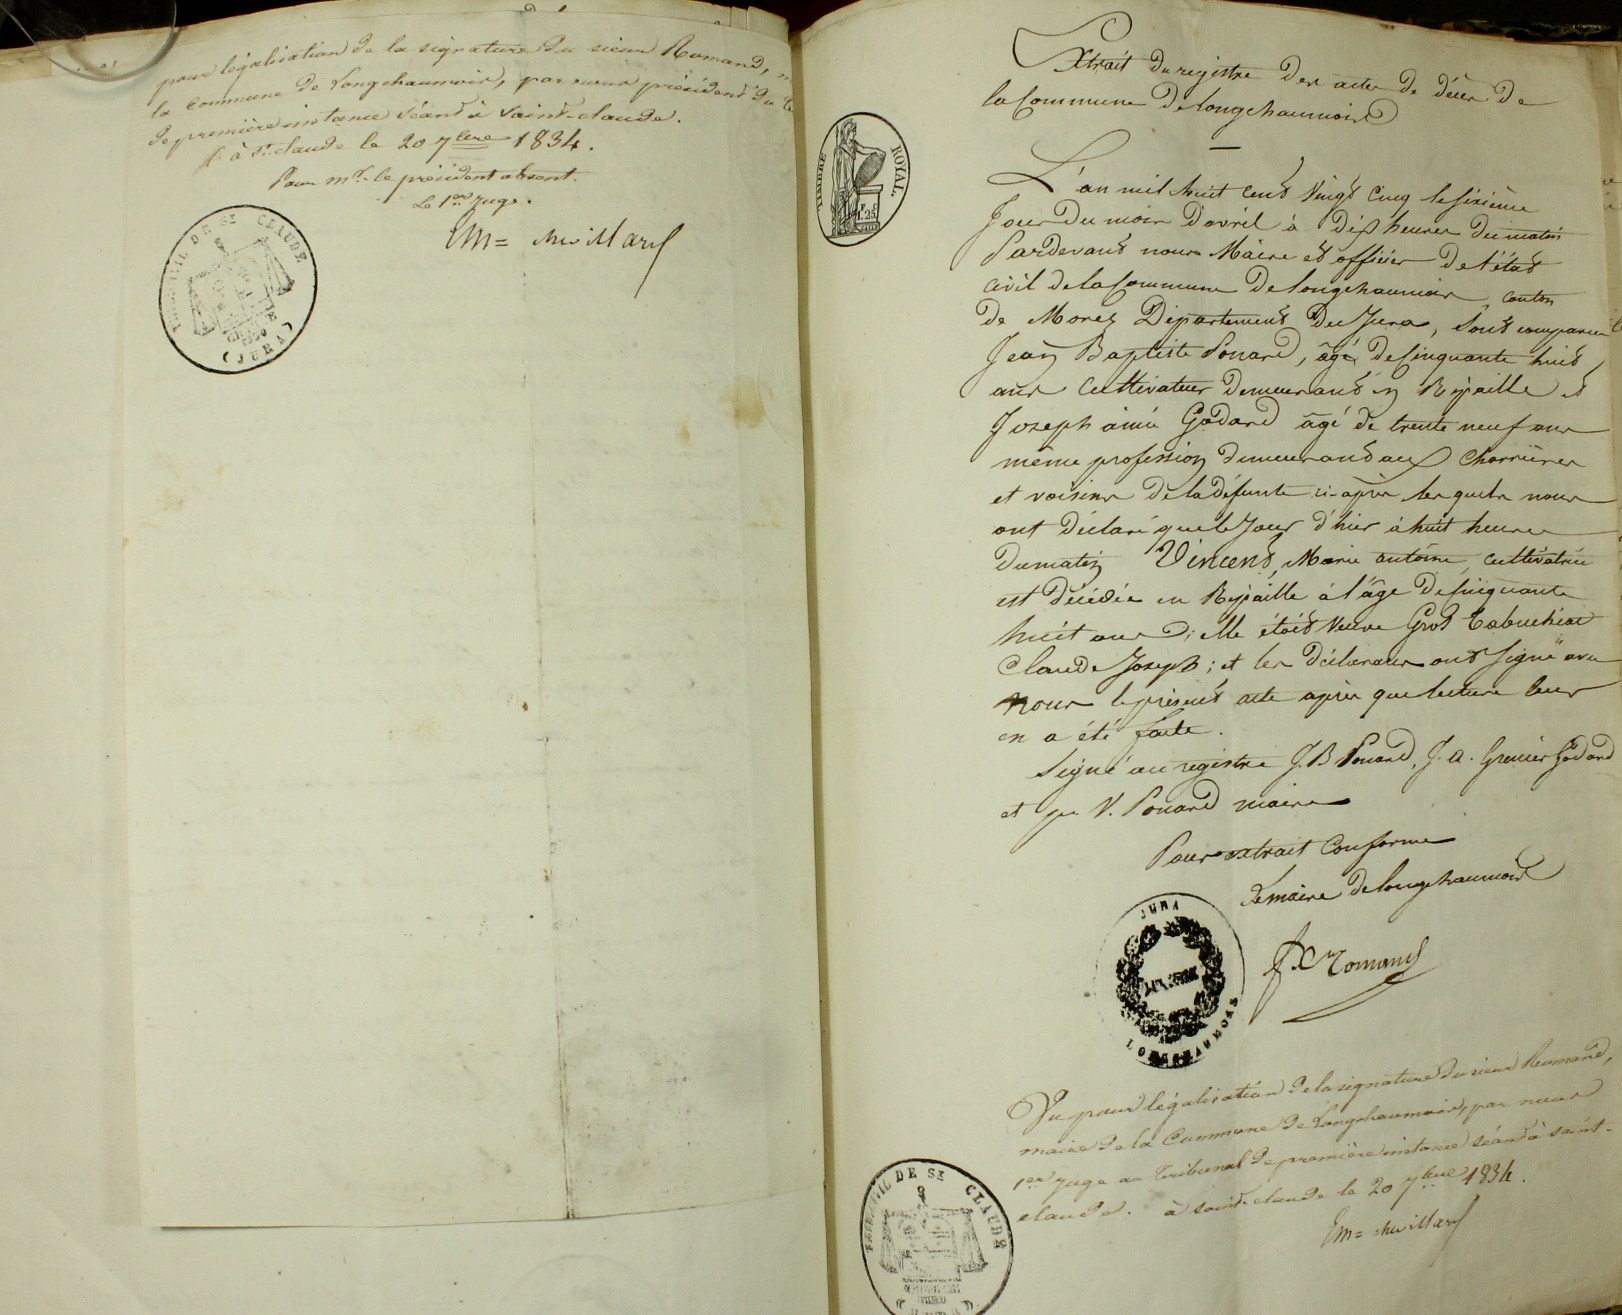 pour légalisation de la signature du sieur Romand,
la commune de Longchaumois, par nous président du
de première instance séant à Saint-Claude.
à St. Claude le 20 7bre 1834.
Pour Mr. le président absent.
Le 1er Juge.
DE St. CLAUDE
(JURA)
Extrait du registre des actes de décès de
la Commune de Longchaumois
TIMBRE ROYAL.
L'an mil huit cent vingt cinq le sixième
Jour du mois d'avril à dix heures du matin
Pardevant nous Maire et officier de l'état
civil de la Commune de Longchaumois canton
de Morez Département du Jura, sont comparus
Jean Baptiste Ponard, âgé de cinquante huit
ans cultivateur demeurant en Repaille et
Joseph aimé Godard âgé de trente neuf ans
même profession demeurant aux Charrières
et voisins de la défunte ci-après lesquels nous
ont déclaré que le Jour d'hier à huit heures
du matin Vincent, Marie antoine, cultivatrice
est décédée en Repaille à l'âge de cinquante
huit ans; elle étoit veuve Grod Tabuchiat
Claude Joseph; et les déclarans ont signé avec
nous le présent acte après que lecture leur
en a été faite.
Signé au registre J. B Ponard, J. a. Grenier Godard
et V. Ponard maire
Pour extrait conforme
Le maire de Longchaumois
JURA
Romand
Vu pour légalisation de la signature du sieur Romand,
maire de la Commune de Longchaumois, par nous
1er Juge au Tribunal de première instance séant à Saint-
Claude. à Saint-Claude le 20 7bre 1834.
DE St. CLAUDE